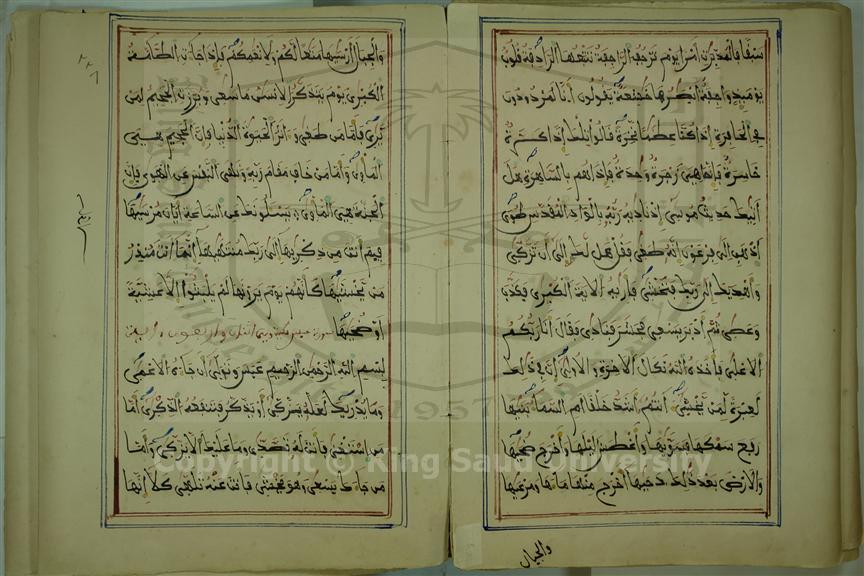 سَبْقًا فَالْمُدَبِّرَٰتِ أَمْرًا يَوْمَ تَرْجُفُ الرَّاجِفَةُ تَتْبَعُهَا الرَّادِفَةُ قُلُوبٌ
يَوْمَئِذٍ وَاجِفَةٌ أَبْصَٰرُهَا خَٰشِعَةٌ يَقُولُونَ أَنَّا لَمَرْدُودُونَ
فِي الْحَافِرَةِ إِذَا كُنَّا عِظَٰمًا نَّخِرَةً قَالُوا تِلْكَ إِذًا كَرَّةٌ
خَاسِرَةٌ فَإِنَّمَا هِيَ زَجْرَةٌ وَٰحِدَةٌ فَإِذَا هُم بِالسَّاهِرَةِ هَلْ
أَتَيٰكَ حَدِيثُ مُوسَىٰ إِذْ نَادَيٰهُ رَبُّهُ بِالْوَادِ الْمُقَدَّسِ طُوًى
اذْهَبْ إِلَىٰ فِرْعَوْنَ إِنَّهُ طَغَىٰ فَقُلْ هَل لَّكَ إِلَىٰ أَن تَزَّكَّىٰ
وَأَهْدِيَكَ إِلَىٰ رَبِّكَ فَتَخْشَىٰ فَأَرَيٰهُ الْآيَةَ الْكُبْرَىٰ فَكَذَّبَ
وَعَصَىٰ ثُمَّ أَدْبَرَ يَسْعَىٰ فَحَشَرَ فَنَادَىٰ فَقَالَ أَنَا رَبُّكُمُ
الْأَعْلَىٰ فَأَخَذَهُ اللَّهُ نَكَالَ الْآخِرَةِ وَالْأُولَىٰ إِنَّ فِي ذَٰلِكَ
لَعِبْرَةً لِّمَن يَخْشَىٰ أَنتُمْ أَشَدُّ خَلْقًا أَمِ السَّمَاءُ بَنَيٰهَا
رَفَعَ سَمْكَهَا فَسَوَّيٰهَا وَأَغْطَشَ لَيْلَهَا وَأَخْرَجَ ضُحَيٰهَا
وَالْأَرْضَ بَعْدَ ذَٰلِكَ دَحَيٰهَا أَخْرَجَ مِنْهَا مَاءَهَا وَمَرْعَيٰهَا
والجبال
وَالْجِبَالَ أَرْسَيٰهَا مَتَٰعًا لَّكُمْ وَلِأَنْعَٰمِكُمْ فَإِذَا جَاءَتِ الطَّامَّةُ
الْكُبْرَىٰ يَوْمَ يَتَذَكَّرُ الْإِنسَٰنُ مَا سَعَىٰ وَبُرِّزَتِ الْجَحِيمُ لِمَن
يَرَىٰ فَأَمَّا مَن طَغَىٰ وَآثَرَ الْحَيَوٰةَ الدُّنْيَا فَإِنَّ الْجَحِيمَ هِيَ
الْمَأْوَىٰ وَأَمَّا مَنْ خَافَ مَقَامَ رَبِّهِ وَنَهَى النَّفْسَ عَنِ الْهَوَىٰ فَإِنَّ
الْجَنَّةَ هِيَ الْمَأْوَىٰ يَسْـَٔلُونَكَ عَنِ السَّاعَةِ أَيَّانَ مُرْسَيٰهَا
فِيمَ أَنتَ مِن ذِكْرَيٰهَا إِلَىٰ رَبِّكَ مُنتَهَيٰهَا إِنَّمَا أَنتَ مُنذِرُ
مَن يَخْشَيٰهَا كَأَنَّهُمْ يَوْمَ يَرَوْنَهَا لَمْ يَلْبَثُوا إِلَّا عَشِيَّةً
أَوْ ضُحَيٰهَا سورة عبس
بِسْمِ اللَّهِ الرَّحْمَٰنِ الرَّحِيمِ عَبَسَ وَتَوَلَّىٰ أَن جَاءَهُ الْأَعْمَىٰ
وَمَا يُدْرِيكَ لَعَلَّهُ يَزَّكَّىٰ أَوْ يَذَّكَّرُ فَتَنفَعُهُ الذِّكْرَىٰ أَمَّا
مَنِ اسْتَغْنَىٰ فَأَنتَ لَهُ تَصَّدَّىٰ وَمَا عَلَيْكَ أَلَّا يَزَّكَّىٰ وَأَمَّا
مَن جَاءَكَ يَسْعَىٰ وَهُوَ يَخْشَىٰ فَأَنتَ عَنْهُ تَلَهَّىٰ كَلَّا إِنَّهَا
1957
Copyright © King Saud University